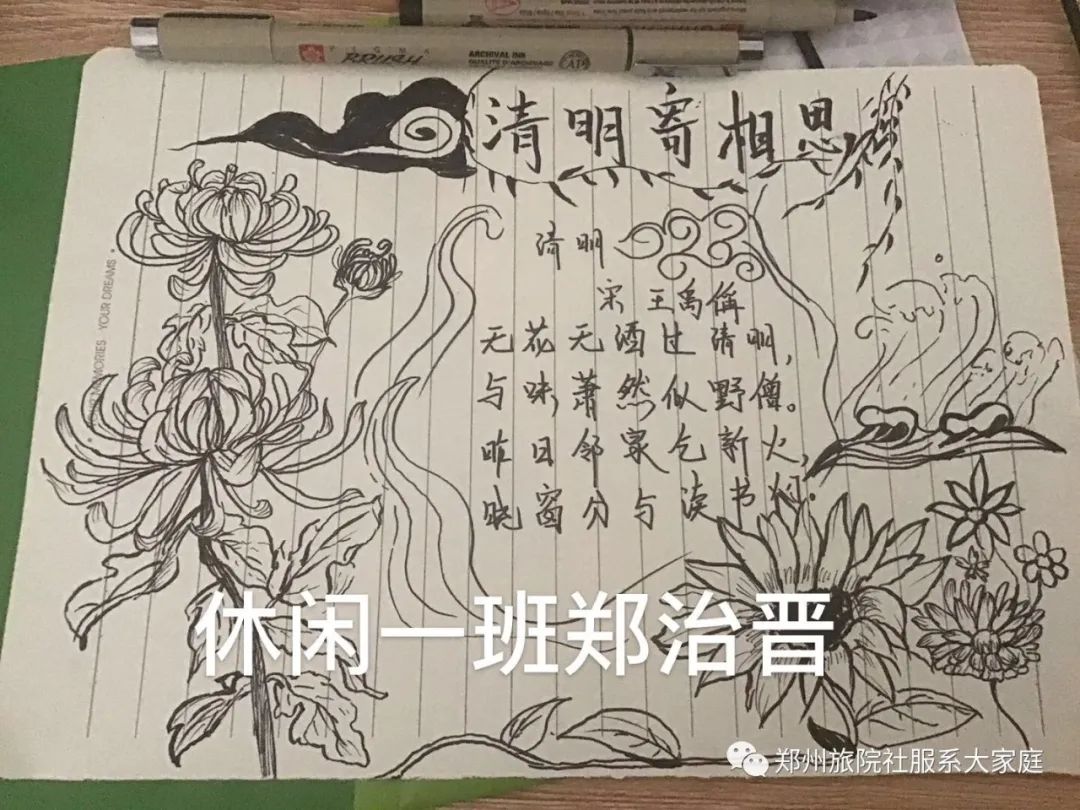 PIGMA
BRUSH
ARCHIVAL INK
QUALITÉ D'ARCHIVAGE
清明寄相思
清明
宋 王禹偁
无花无酒过清明,
与味萧然似野僧。
昨日邻家乞新火,
晓窗分与读书灯。
MEMORIES · YOUR DREAMS
休闲一班郑治晋
郑州旅院社服系大家庭